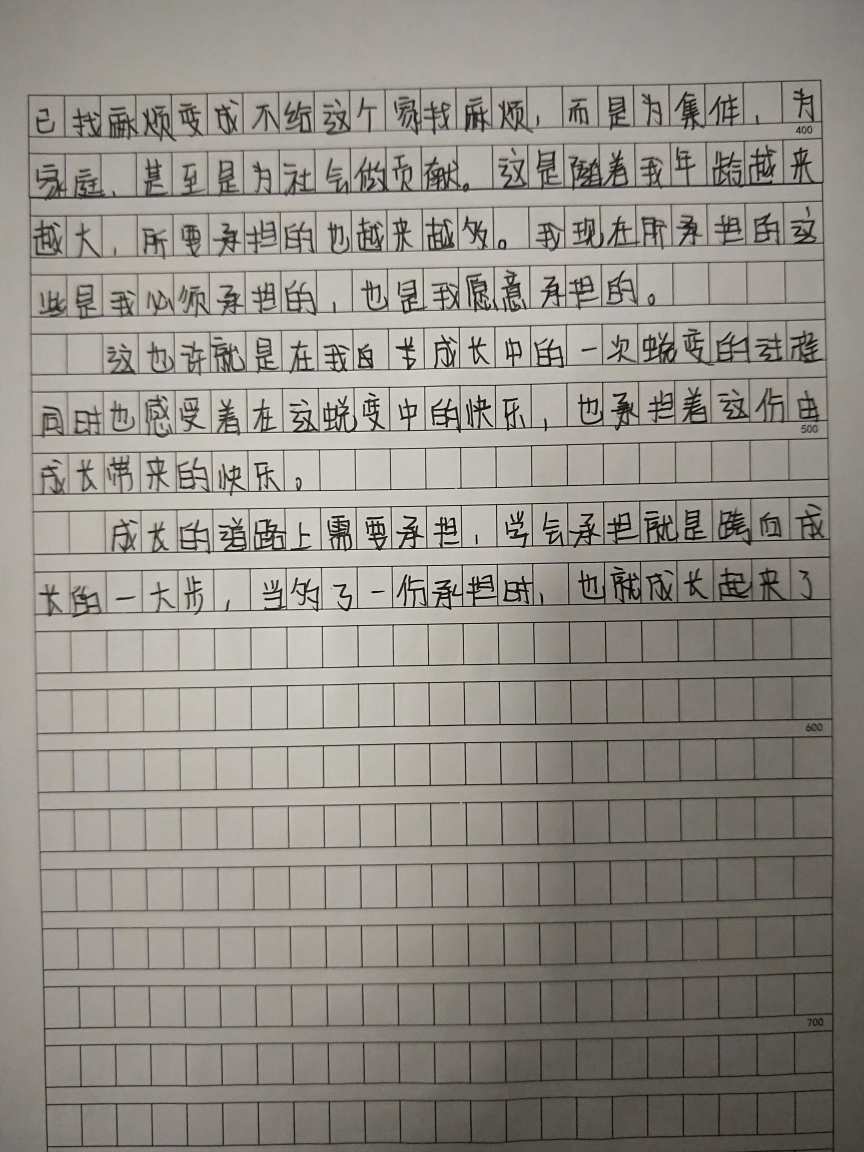 己找麻烦变成不给这个家找麻烦，而是为集体，为
400
家庭、甚至是为社会做贡献。这是随着我年龄越来
越大，所要承担的也越来越多。我现在所承担的这
些是我必须承担的，也是我愿意承担的。
这也许就是在我自长成长中的一次蜕变的过程
同时也感受着在这蜕变中的快乐，也承担着这份由
500
成长带来的快乐。
成长的道路上需要承担，学会承担就是跨向成
长的一大步，当多了一份承担时，也就成长起来了
600
700